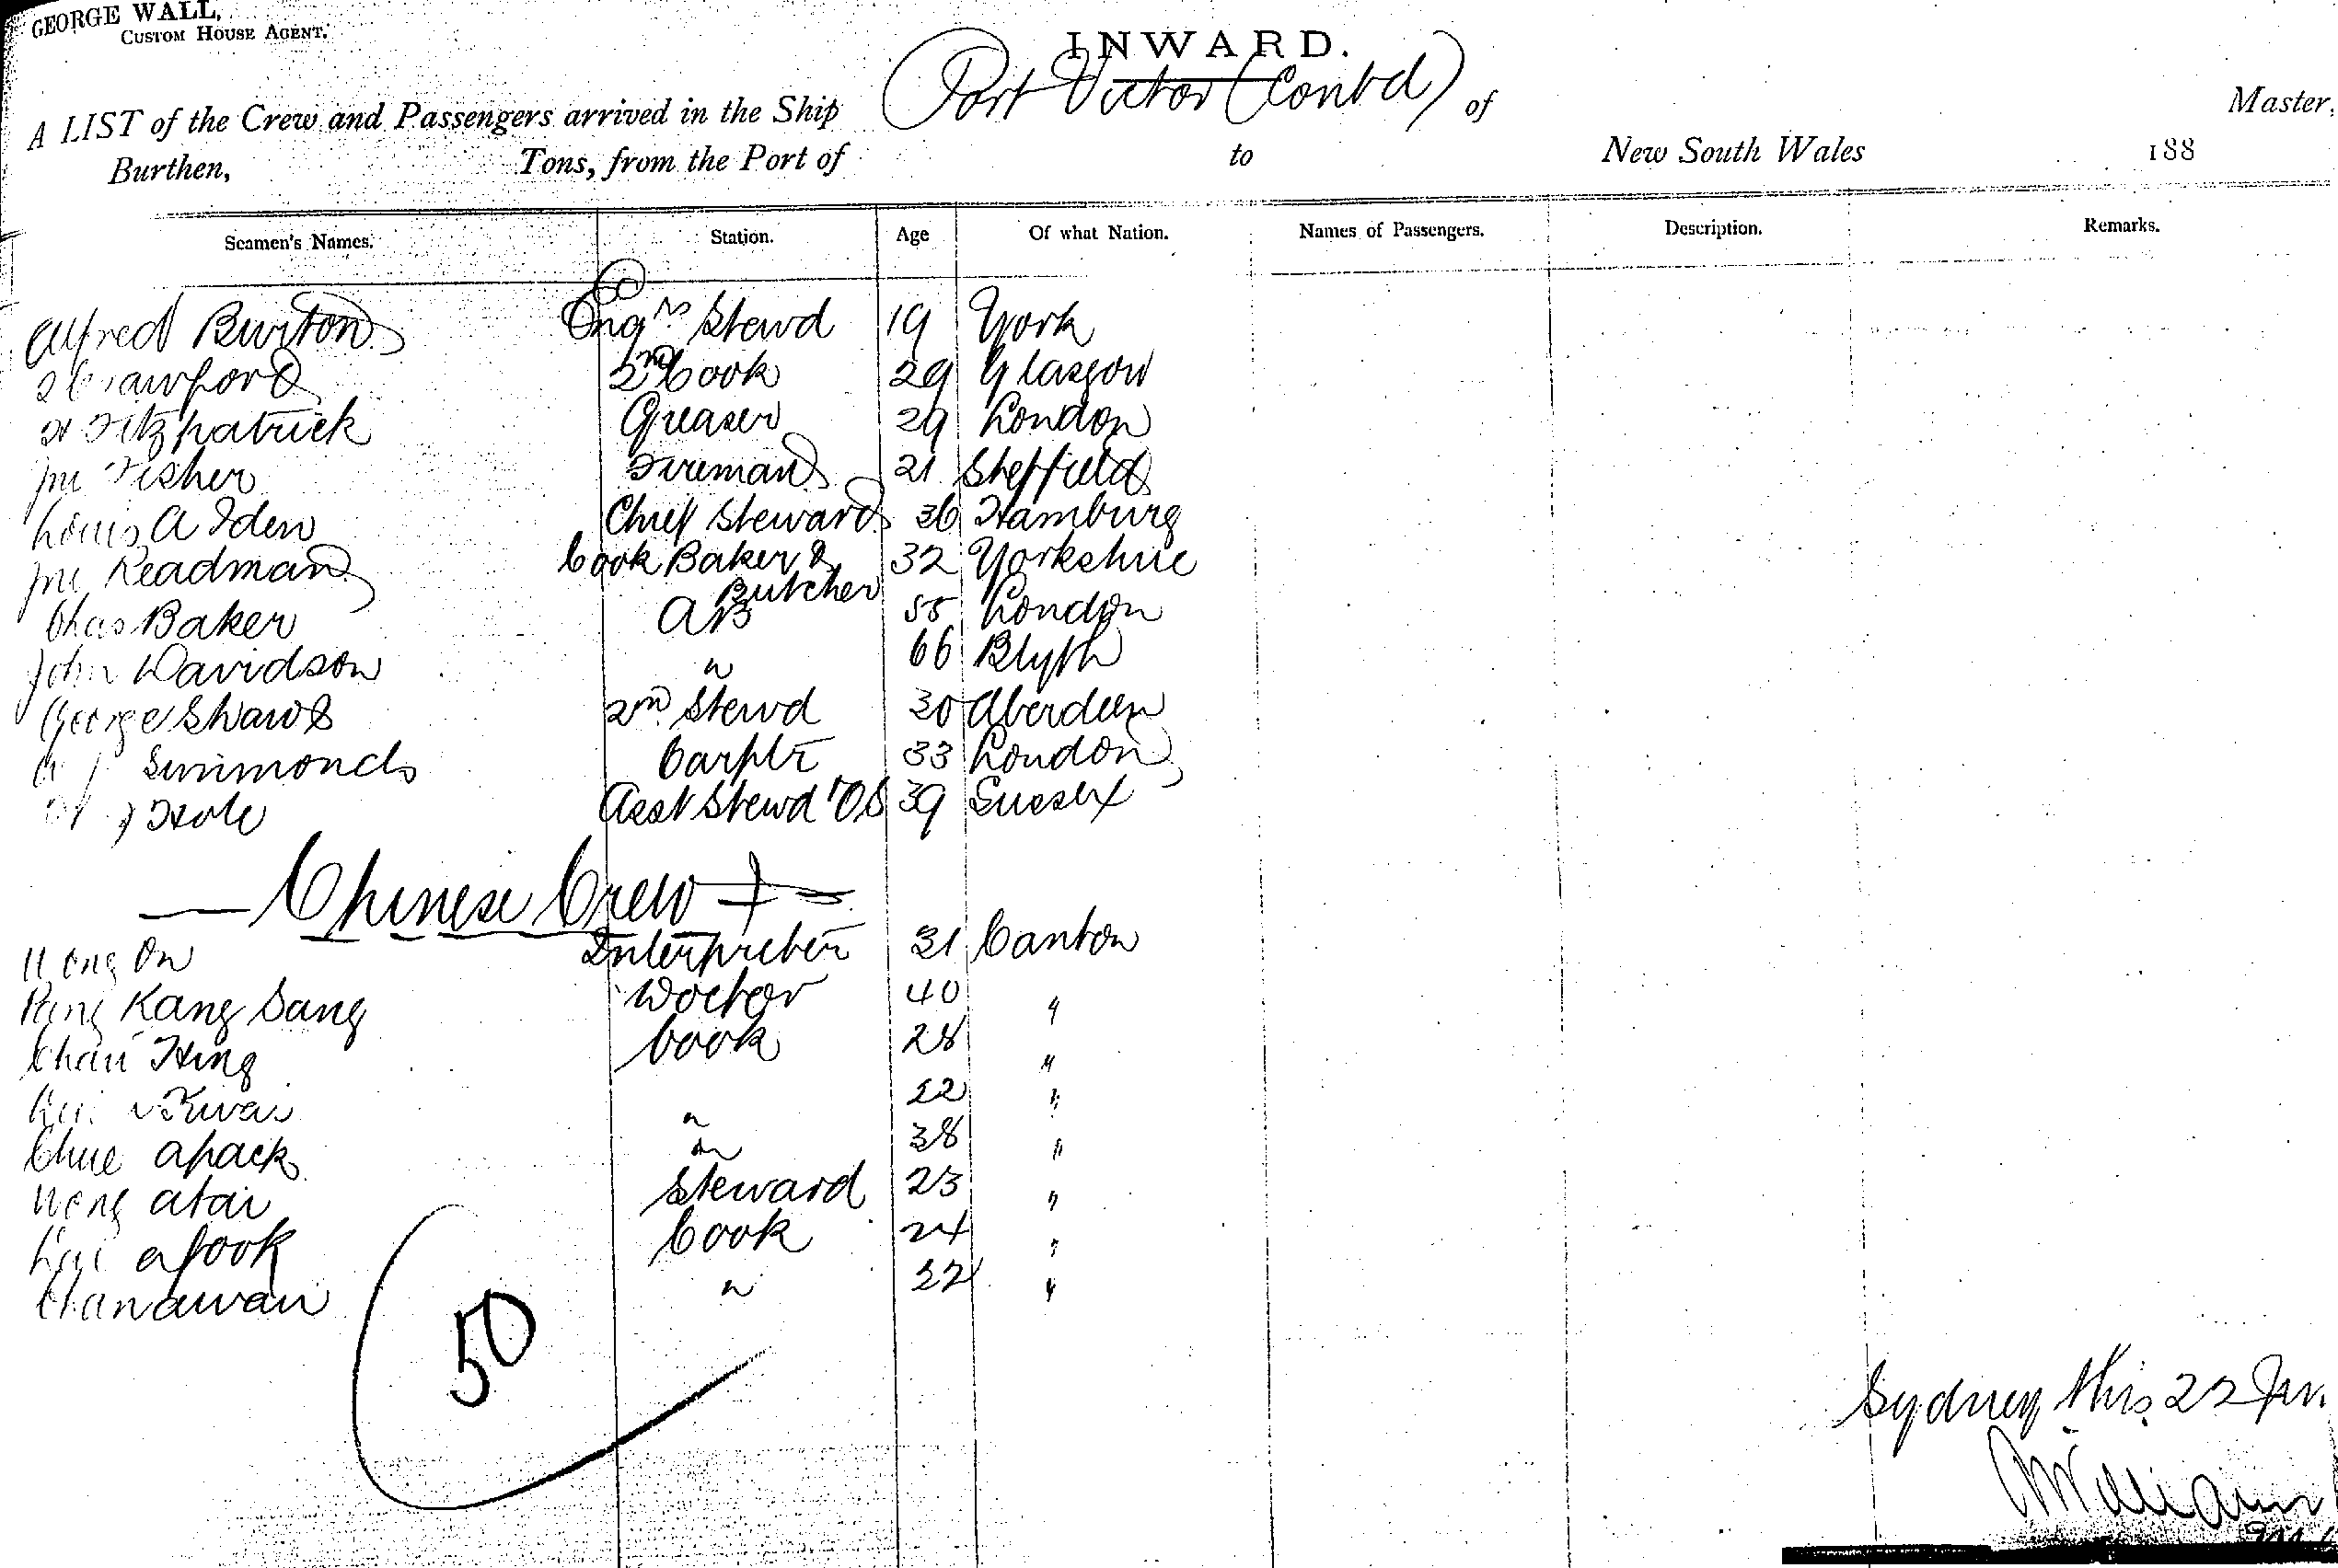 GEORGE WALL,
CUSTOM HOUSE AGENT.
INWARD.
A LIST of the Crew and Passengers arrived in the Ship Port Victor (Contd) of Master,
Burthen, Tons, from the Port of to New South Wales 188
Seamen's Names. Station. Age Of what Nation. Names of Passengers. Description. Remarks.
Alfred Burton Engrs Stewd 19 York
Crawford 2nd Cook 29 Glasgow
Fitzpatrick Greaser 29 London
Fisher Fireman 21 Sheffield
Louis A Iden Chief Steward 36 Hamburg
Readman Cook Baker & 32 Yorkshire
Butcher
Chas Baker AB 55 London
John Davidson " 66 Blyth
George Shaw 2nd Stewd 30 Aberdeen
Simmonds Carptr 33 London
Hole Asst Stewd OS 39 Sussex
Chinese Crew
On Interpreter 31 Canton
Kang Sang Doctor 40 "
Chan Hing Cook 28 "
22 "
Chue apack " 38 "
Wong atai Steward 23 "
afook Cook 24 "
Chanawan " 22 "
50
Sydney this 22 Jan.
Williams